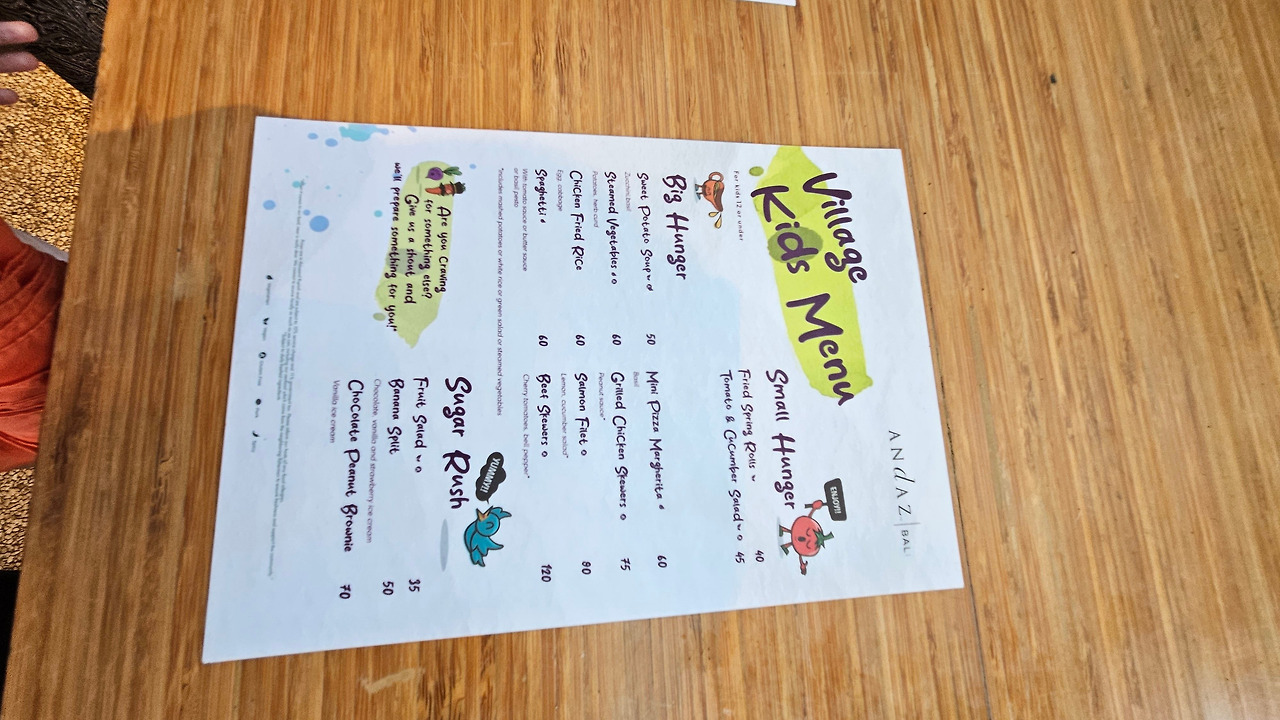 ANdAZ | BALI
Village
Kids Menu
For kids 12 or under
ENJOY!!
Small Hunger
Fried Spring Rolls 40
Tomato & Cucumber Salad 45
Big Hunger
Sweet Potato Soup 50
Zucchini basil
Steamed Vegetables 60
Potatoes, herb curd
Chicken Fried Rice 60
Egg, cabbage
Spaghetti 60
With tomato sauce or butter sauce
or basil pesto
Mini Pizza Margherita 60
Basil
Grilled Chicken Skewers 75
Peanut sauce*
Salmon Filet 80
Lemon, cucumber salad*
Beef Skewers 120
Cherry tomatoes, bell pepper*
*Includes mashed potatoes or white rice or green salad or steamed vegetables
Are you Craving
for something else?
Give us a shout and
we'll prepare something for you!"
YUMMY!
Sugar Rush
Fruit Salad 35
Banana Split 50
Chocolate, vanilla and strawberry ice cream
Chocolate Peanut Brownie 70
Vanilla ice cream